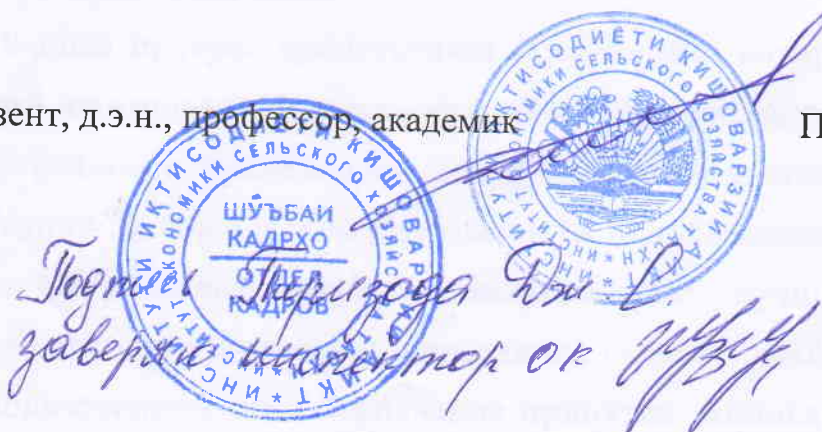 зент, д.э.н., профессор, академик П
ИНСТИТУТИ ИҚТИСОДИЁТИ КИШОВАРЗИИ АИКТ
ИНСТИТУТ ЭКОНОМИКИ СЕЛЬСКОГО ХОЗЯЙСТВА ТАСХН
ИНСТИТУТИ ИҚТИСОДИЁТИ КИШОВАРЗИИ АИКТ
ЭКОНОМИКИ СЕЛЬСКОГО ХОЗЯЙСТВА
ШУЪБАИ
КАДРҲО
ОТДЕЛ
КАДРОВ
Подпись Пиризода Дж. С.
заверяю инспектор ОК